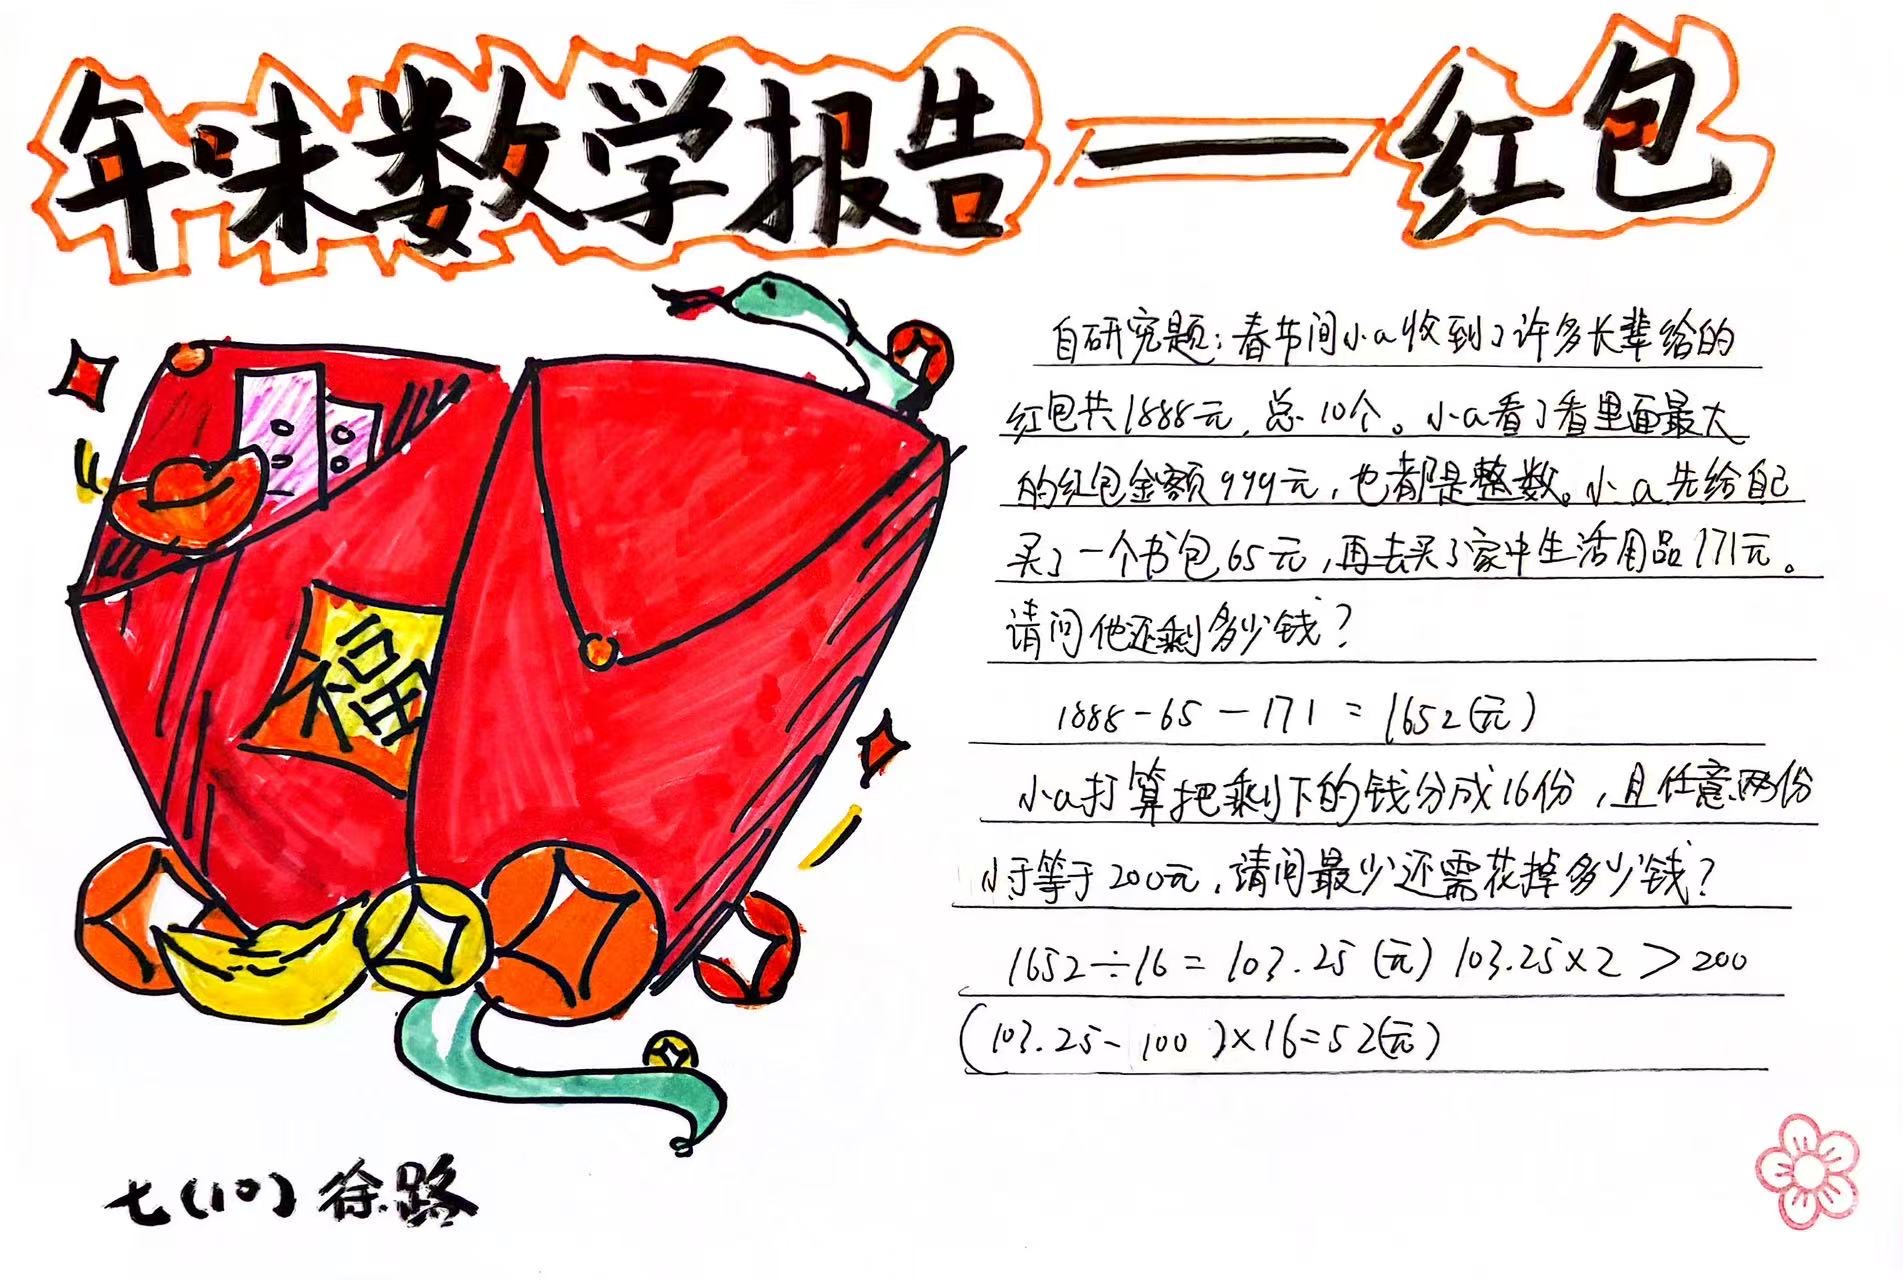 年味数学报告——红包
自研究题：春节间小a收到了许多长辈给的
红包共1888元，总10个。小a看了看里面最大
的红包金额999元，也都是整数。小a先给自己
买了一个书包65元，再去买了家中生活用品171元。
请问他还剩多少钱？
1888-65-171=1652(元)
小a打算把剩下的钱分成16份，且任意两份
小于等于200元，请问最少还需花掉多少钱？
1652÷16=103.25(元) 103.25×2＞200
(103.25-100)×16=52(元)
福
七(10)徐路